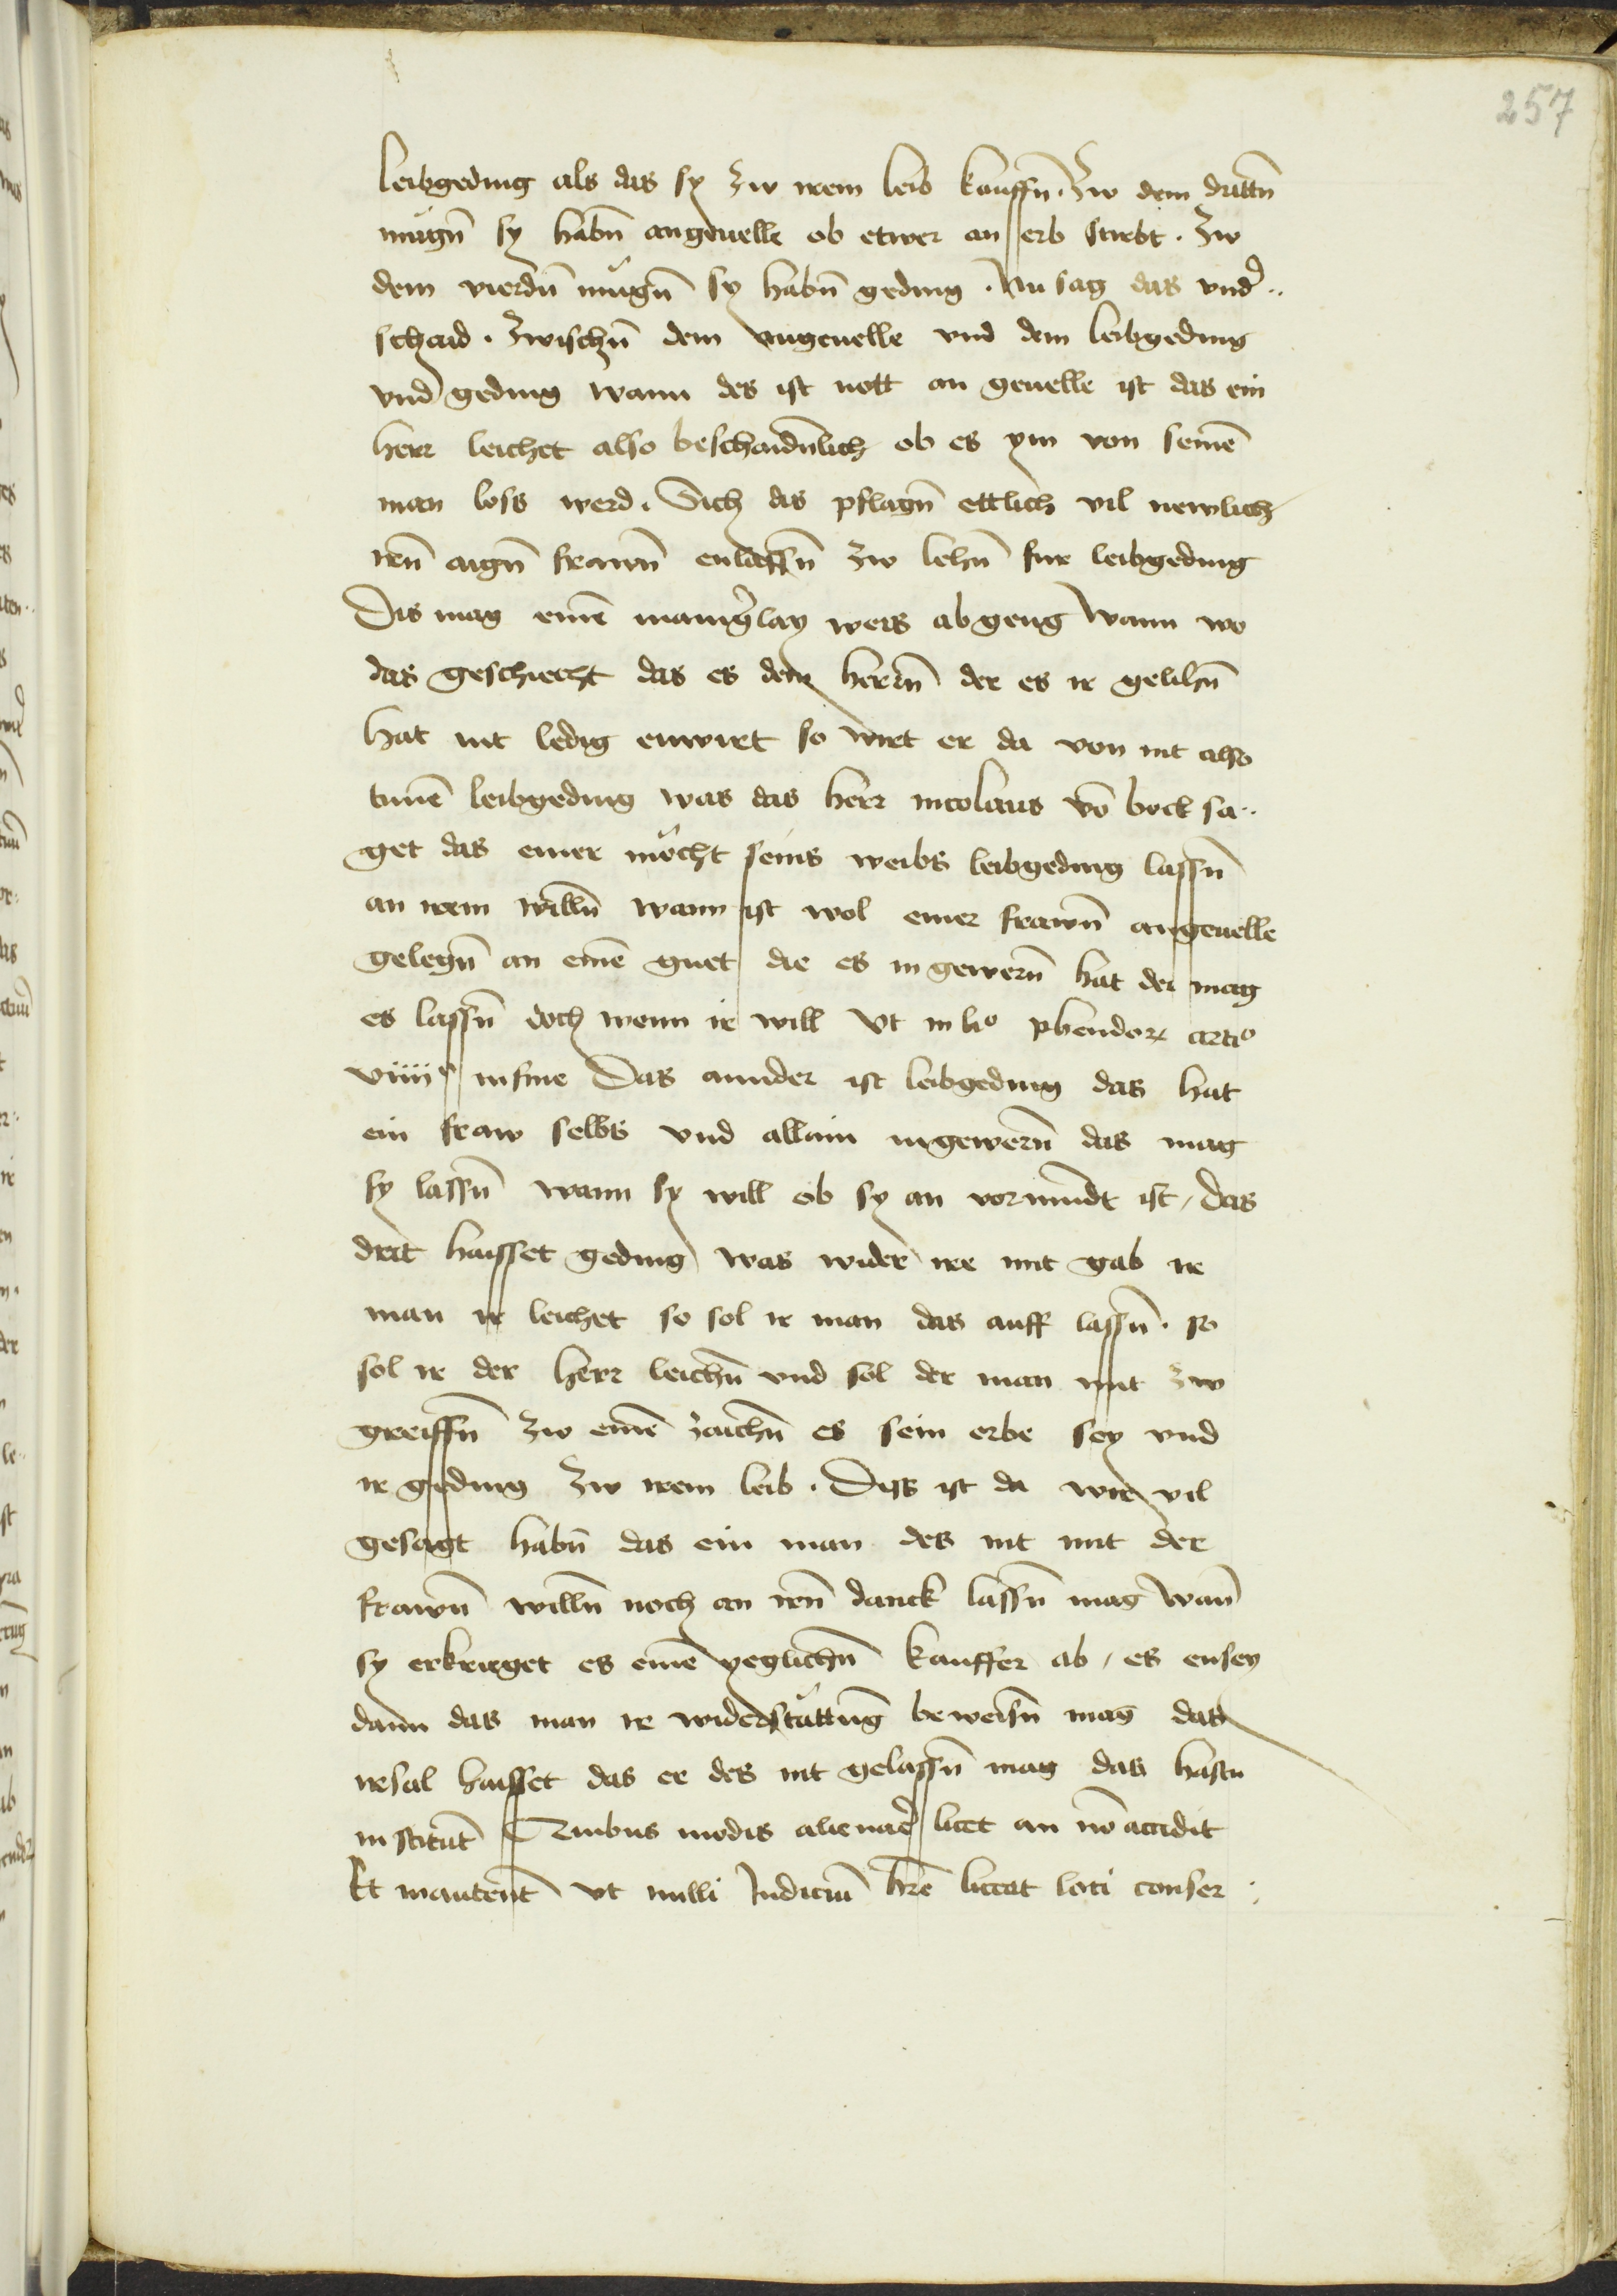 257
leibgeding als das sy zw irem leib kauffn̄. Zw dem drittn̄
mügn̄ sy habn̄ angeuelle ob etwer an erb stirbt. Zw
dem vierdn̄ mügn̄ sy habn̄ geding. Nu sag das vnd̾
schaid. Zwischn̄ dem angeuelle vnd dem leibgeding
vnd geding wann des ist nott an geuelle ist das ein
herr leichet also beschaidnlich ob es ym von seinē
man loss werd. Sich das pflagn̄ ettlich vil newlich
irn̄ aign̄ frawn̄ enlassn̄ zw lehn̄ fur leibgeding
Dis mag einē manig̾lay weis abgeng wann wo
das geschiecht das es dem herrn̄ der es ir gelihn̄
hat nit ledig enwirt so wirt er da von nit also
tunē leibgeding was das herr nicolaus vō bock sa
get das einer möcht seins weibs leibgeding lassn̄
an irem willn̄ wann ist wol einer frawn̄ angeuelle
gelegn̄ an einē guet die es in gewern̄ hat der mag
es lassn̄ doch wenn ir will Vt in li° phendor. arti°
viiii° in fine Das annder ist leibgeding das hat
ein fraw selbs vnd allain in gewern̄ das mag
sy lassn̄ wann sy will ob sy an vormundt ist, das
drit haisset geding was wider ire mit gab ir
man ir leichet so sol ir man das auff lassn̄. so
sol ir der herr leichn̄ vnd sol der man mit zw
greiffn̄ zw einē zaichn̄ es sein erbe sey vnd
ir geding zw irem leib. Diss ist da wir vil
gesagt habn̄ das ein man des nit mit der
frawn̄ willn̄ noch an irn̄ danck lassn̄ mag wan̄
sy erkrieget es einē yeglichn̄ kauffer ab, es ensey
dann das man ir widerstattūg beweisn̄ mag das
irsal haisset das er des nit gelassn̄ mag das hastu
in stitut̄ Quibus modis alienar̾ licet an nō accidit
Et mantent̄ vt nulli Judiciū hr̄e liceat loci conser